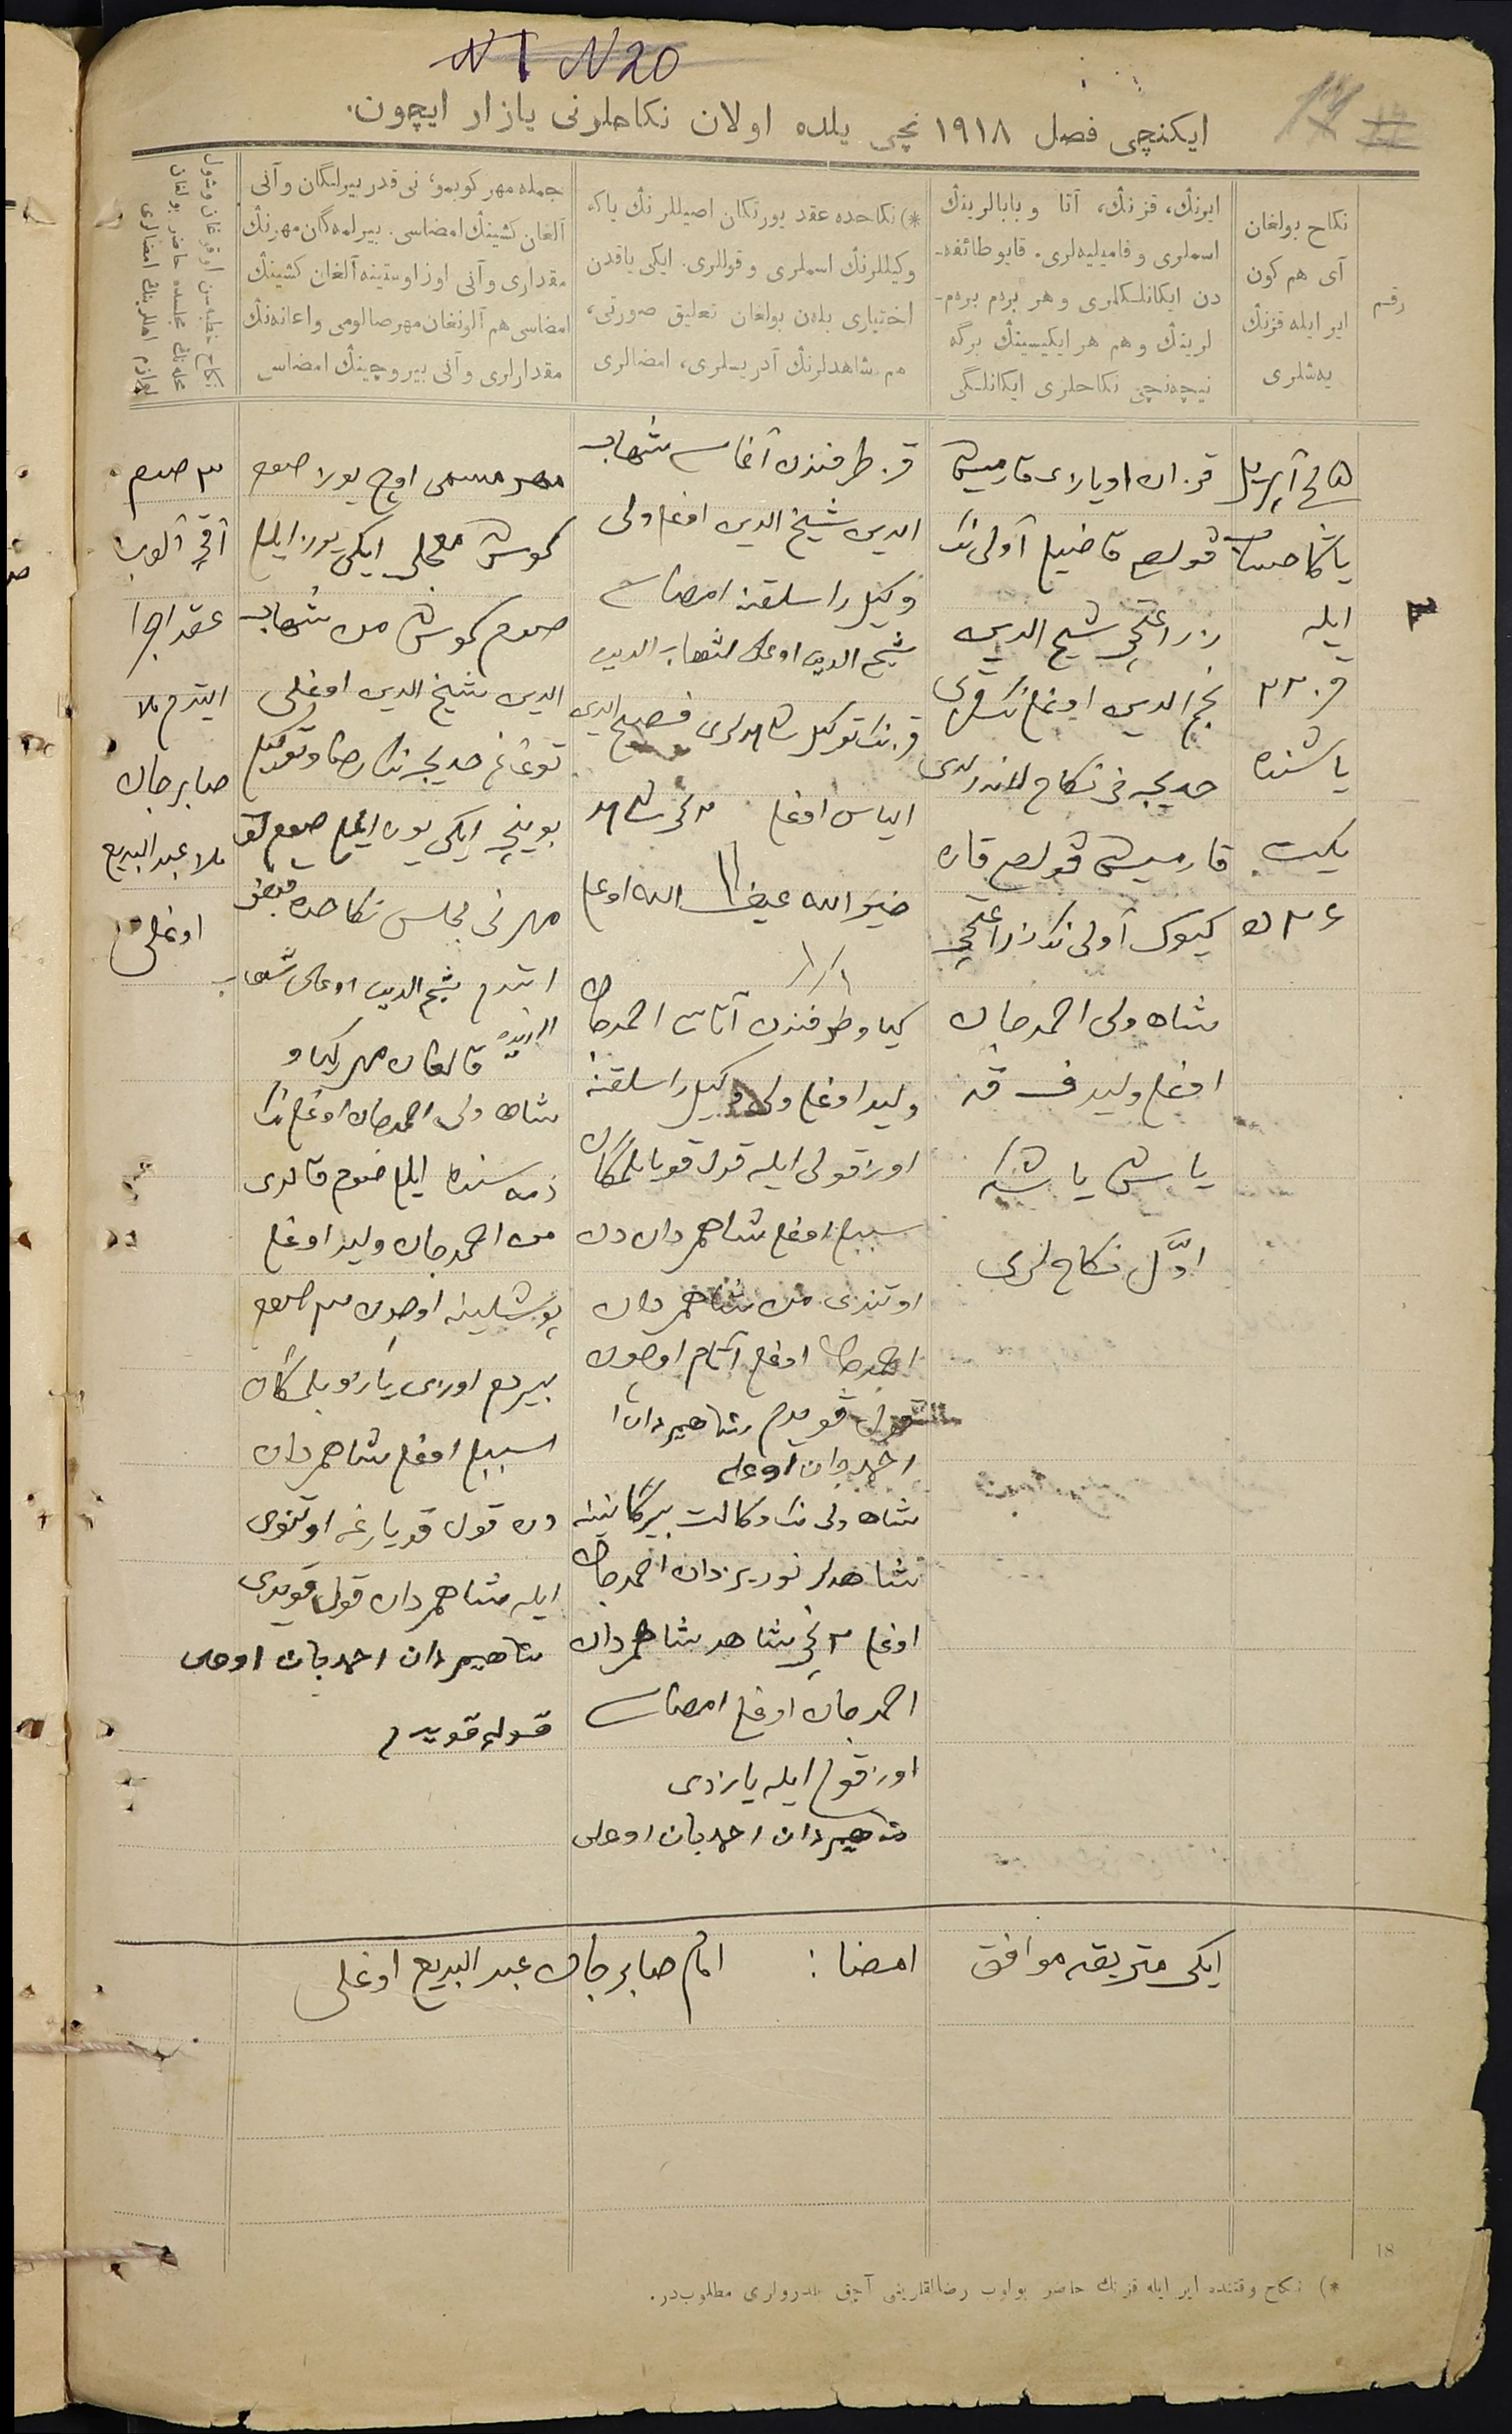 N 1 N 20
17
ایکنچی فصل ۱۹۱۸ نچی یلده اولان نکاحلرنی یازار ایچون.
رقم
نکاح بولغان
آی هم کون
ایر ایله قزنڭ
یه‌شلری
ایرنڭ، قزنڭ، آتا و بابالرینڭ
اسملری و فامیلیه‌لری. قایو طائفه‌-
دن ایکانلکلری و هر بردم بردم-
لرینڭ و هم هر ایکیسینڭ برگه
نیچه‌نچی نکاحلری ایکانلگی
*) نکاحده عقد یورتکان اصیللرنڭ یاکه
وکیللرنڭ اسملری و قوللری. ایکی یاقدن
اختیاری بله‌ن بولغان تعلیق صورتی،
هم شاهدلرنڭ آدریسلری، امضالری
جمله مهر کوبمو، نی قدر بیرلگان و آنی
آلغان کشینڭ امضاسی. بیرلمه‌گان مهرنڭ
مقداری و آنی اوز اوستینه آلغان کشینڭ
امضاسی هم آلونغان مهر صالومی و اعانه‌نڭ
مقدارلری و آنی بیروچینڭ امضاسی
نکاح خطبه‌سن اوقوغان و شول
محله‌نڭ مجلسده حاضر بولغان
لوازم اهللرینڭ امضالری
۳
آپریل
ایله
قز ۲۲
یاشنده
یکیت
قزان اویازی قارمیش
قولصه قاضیلی آولی نڭ
زراعتچی شیخ الدین
نجم الدین اوغلی نڭ قزی
خدیجه فی نکاحلاندردی
قارمیش قولصه قاره
کیوک آولی نڭ زراعتچی
شاه ولی احمدجان
اوغلی ولیدف قه
یاش یاشنه
اوّل نکاح لری
قز طرفندن آغاسی شهاب
الدین شیخ الدین اوغلی ولی
وکیل راسلقنه امضاسی
شیخ الدین اوغلی شهاب الدین
قزنڭ توکیل شاهدلری فصیح الدین
الیاس اوغلی ۲نچی شاهد
ضیاء الله اوغلی
کیاو طرفندن آتاسی احمدجان
ولید اوغلی ولی وکیل راسلقنه
اوز قولی ایله قول قویا بلمگان
سببلی اوغلی شاهمردان دن
اوتندی من شاهمردان
احمدجان اوغلی آتام اوچون
قول قویدم شاهیمردان
احمدجان اوغلی
شاه ولی نڭ وکالت بیرگانینه
شاهدلر نوریزدان احمدجان
اوغلی ۲نچی شاهد شاهمردان
احمدجان اوغلی امضاسی
اوز قولی ایله یازدی
شاهیمردان احمدجان اوغلی
مهر مسمی اوچ یوز صوم
کوش معجلی ایکی یوز ایللی
صوم کوش من شهاب
الدین شیخ الدین اوغلی
توغانم خدیجه نڭ رضا و توکیلی
بوینچه ایکی یوز ایللی صوملق
مهرنی مجلس نکاحده قبض
ایتدم شیخ الدین اوغلی شهاب
الدین قالغان مهر کیاو
شاه ولی احمدجان اوغلی نڭ
ذمه سنده ایللی صوم قالدی
من احمدجان ولید اوغلی
پوشلینه اوچون ۳ صوم
بیردم اوزی یازو بلمگان
سببلی اوغلی شاهمردان
دن قول قویارغه اوتنوی
ایله شاهمردان قول قویدی
شاهیمردان احمدجان اوغلی
قول قویدم
۳ صوم
آقچه آلوب
عقد اجرا
ایتدم ملا
صابرجان
ملا عبدالبدیع
اوغلی
ایکی متریقه موافق
امضا : امام صابرجان عبدالبدیع اوغلی
18
*) نکاح وقتنده ایر ایله قزنڭ حاضر بولوب رضالقلرینی آچق بلدرولری مطلوب‌در.